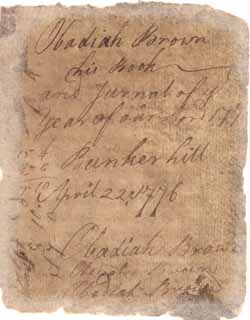 Obadiah Brown
his Book
and Jurnal of ye
Year of our Lord 177
Bunker hill
April 22 1776
Obadiah Brown
Obadiah Brown